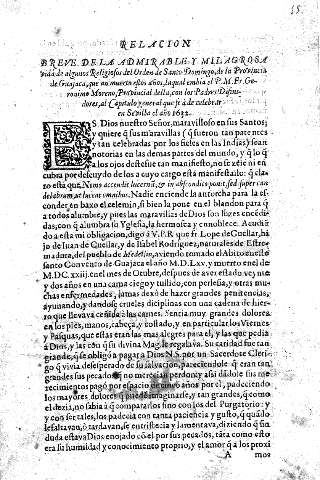 15
RELACION
BREVE DE LA ADMIRABLE Y MILAGROSA
vida de algunos Religiosos del Orden de Santo Domingo, de la Prouincia
de Guajaca, que no muerto estos años, la qual embia el P. M. Fr. Ge-
ronimo Moreno, Prouincial della, con los Padres Difini-
dores, al Capitulo general que se à de celebrar
en Seuilla el año 1632.
ES Dios nuestro Señor, marauilloso en sus Santos;
y quiere q̃ sus marauillas (q̃ fueron tan patentes
y tan celebradas por los fieles en las Indias) sean
notorias en las demas partes del mundo, y q̃ lo q̃
a los ojos deste fue tan manifiesto, no se
cubra por descuydo de los a cuyo cargo està manifestallo: q̃ cla-
ro està que, Nemo accendit lucernā, & in abscondito ponit, sed super can
delabrum, ut luceat omnibus. Nadie enciende la antorcha para la es-
conder, en baxo el celemin, si bien la pone en el blandon para q̃
a todos alumbre, y pues las marauillas de Dios son luzes encēdi-
das, con q̃ alumbra su Yglesia, la hermosea y ennoblece. Acudiē
do a esta mi obligacion, digo à V. P. R. que fr. Lope de Cuellar, hi-
jo de Iuan de Cuellar, y de Isabel Rodriguez, naturales de Estre-
madura, del pueblo de Medellin, auiendo tomado el Abito en este
santo Conuento de Guajaca el año M.D.LXV. y muerto enel de
M.DC.XXIII. en el mes de Octubre, despues de auer estado vey nte
y dos años en vna cama ciego y tullido, con perlesia, y otras mu-
chas enfermedades, jamas dexò de hazer grandes penitencias,
ayunando, y dandose crueles diciplinas con vna cadena de hie-
ro que lleuaua ceñida à las carnes. Sentia muy grandes dolores
en los pies, manos, cabeça, y costado, y en particular los Viernes
y Pasquas, que estas eran las mas alegres para el, y las que pedia
à Dios, y las cō q̃ su diuina Magd. le regalaua. Su caridad fue tan
grande, q̃ se obligò a pagar à Dios N. S. por vn Sacerdote Cleri-
go q̃ viuia desesperado de su saluacion, pareciendole q̃ eran tan
grandes sus pecados, q̃ no merecian perdon, y assi diziole sus me-
recimientos pagò por espacio de años por el, padeciendo
los mayores dolores q̃ puede imaginarse, y tan grandes, q̃ como
el dezia, no sabia à q̃ compararlos sino con los del Purgatorio: y
y con ser tales, los padecia con tanta paciencia y gusto, q̃ quādo
le faltauan, ò tardauan, se entristecia y lamentaua, diziendo q̃ sin
duda estaua Dios enojado cō el por sus pecados, tāta como esto
era su humildad y conocimiento proprio, y el amor q̃ a los proxi
A mos